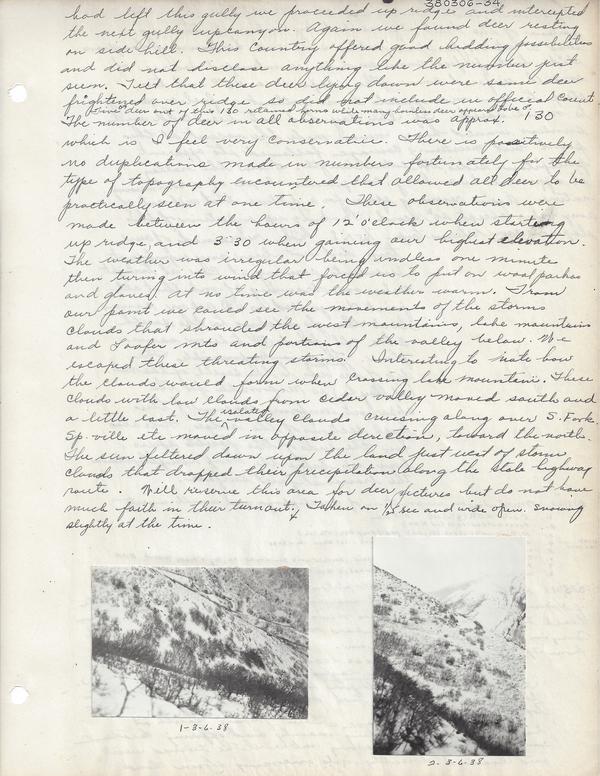 380306-34
had left this gully we proceeded up ridge and intercepted
the next gully upcanyon. Again we found deer resting
on side hill. This country offered good bedding possibilities
and did not disclose anything like the number just
seen. Felt that these deer lying down were same deer
frightened over ridge so did not include in official count.
Five deer out of this 130 retained horns while many hornless deer appeared to be
The number of deer in all observations was approx. 130
which is I feel very conservative. There is positively
no duplications made in numbers fortunately for the
type of topography encountered that allowed all deer to be
practically seen at one time. These observations were
made between the hours of 12 o'clock when starting
up ridge, and 3:30 when gaining our highest elevation.
The weather was irregular being windless one minute
then turning into wind that forced us to put on wool parkas
and gloves. At no time was the weather warm. From
our point we could see the movements of the storms
clouds that shrouded the west mountains, lake mountains
and Loafer mts and portions of the valley below. We
escaped these threating storms. Interesting to note how
the clouds would form when crossing lake mountain. These
clouds with low clouds from cedar valley moved south and
a little east. The isolated valley clouds cruising along over S. Fork.
Sp-ville etc moved in opposite derection, toward the north.
The sun filtered down upon the land just west of storm
clouds that dropped their precipitation along the state highway
route. Will reserve this area for deer pictures but do not have
much faith in their turnout. Taken on 1/25 sec and wide open. snowing
slightly at the time.
1-3-6-38
2-3-6-38